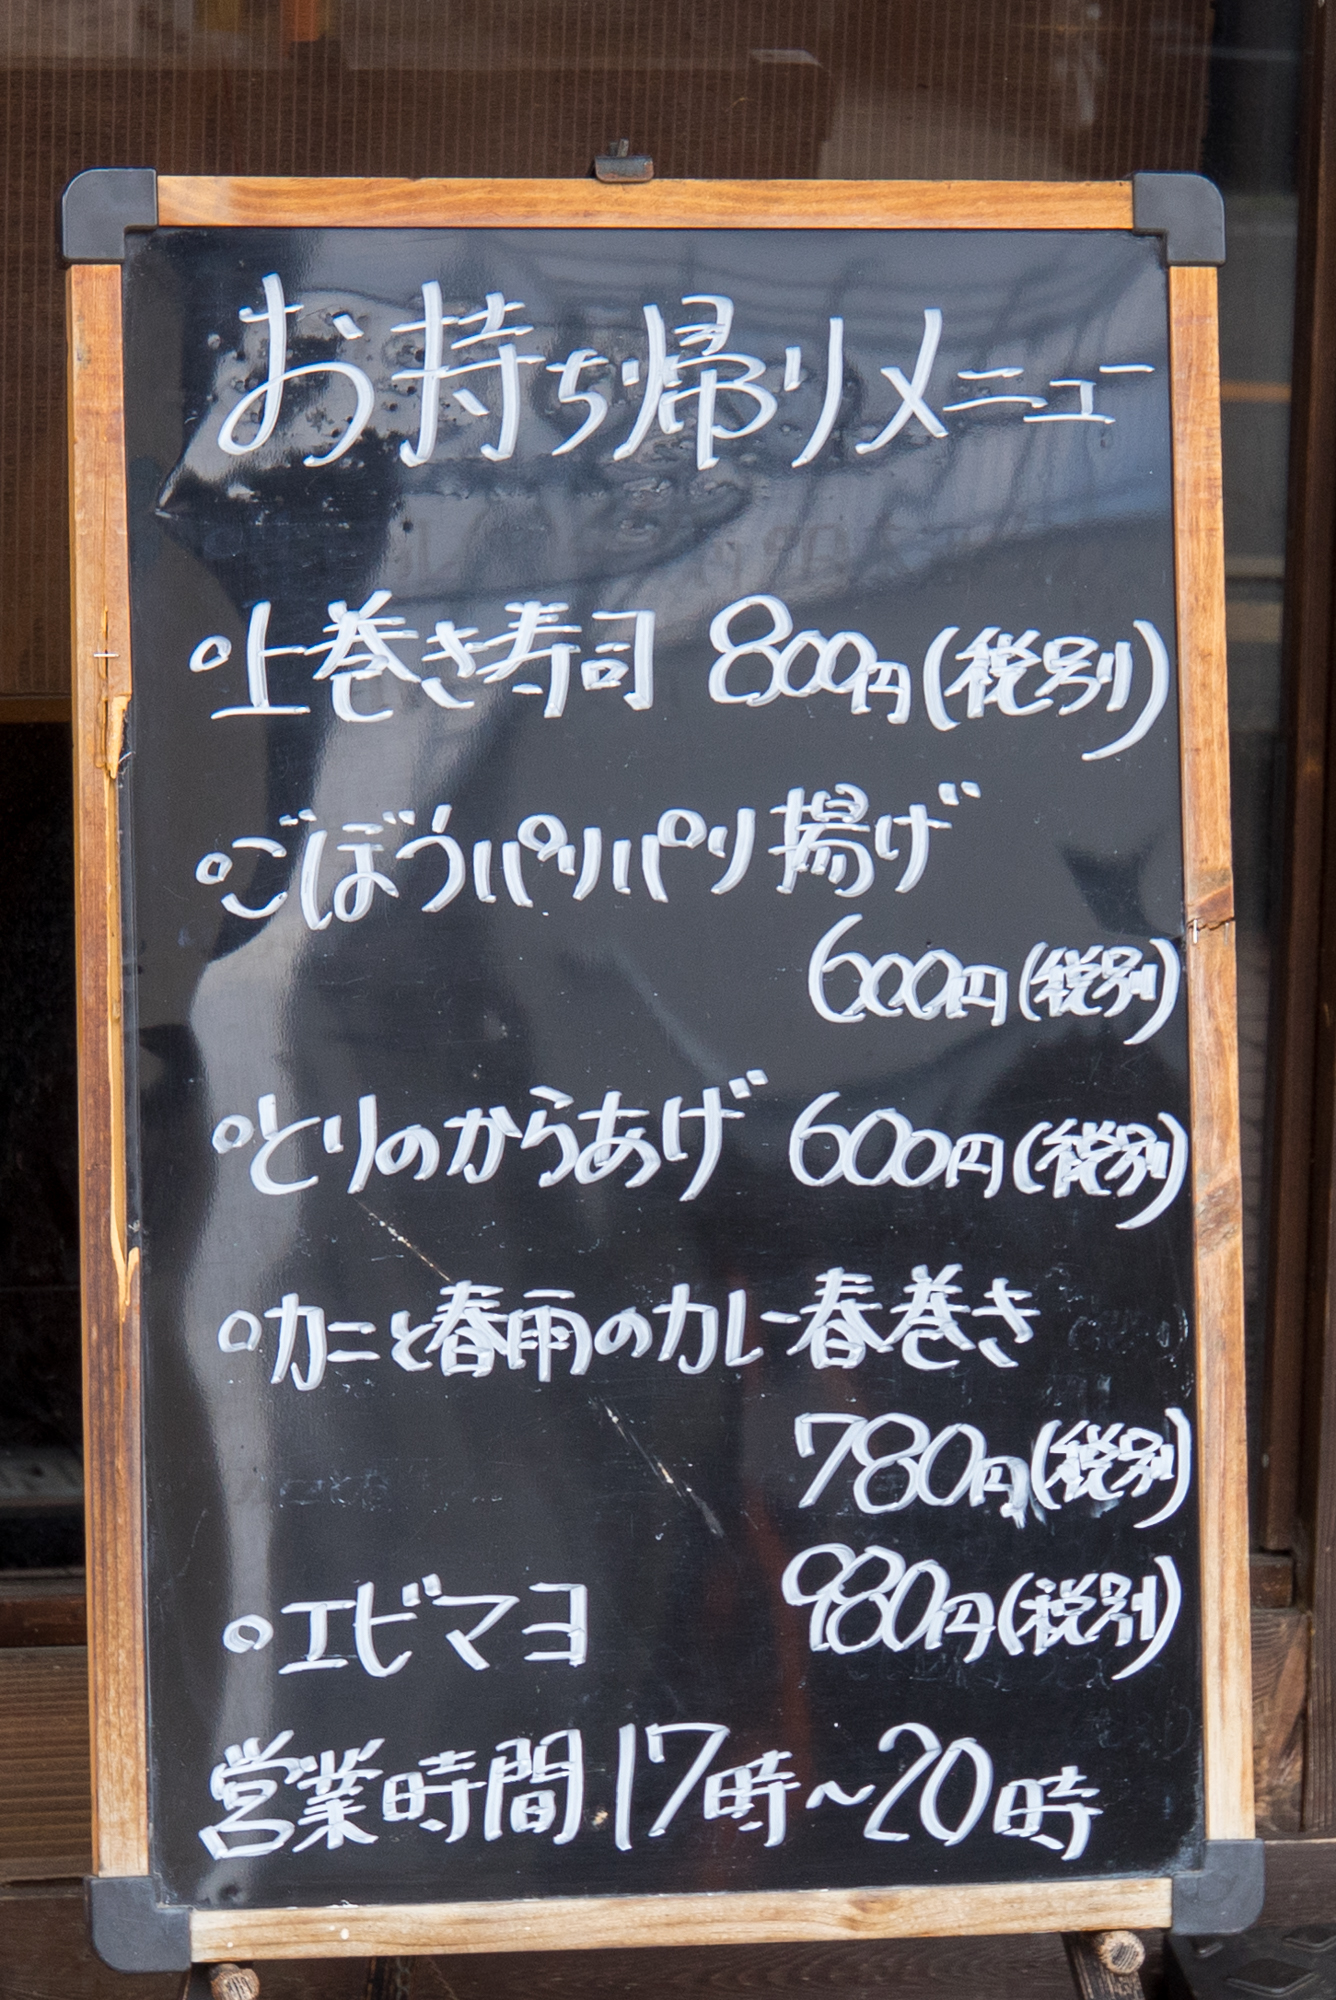 お持ち帰りメニュー
○上巻き寿司 800円(税別)
○ごぼうパリパリ揚げ
600円(税別)
○とりのからあげ 600円(税別)
○カニと春雨のカレー春巻き
780円(税別)
○エビマヨ 980円(税別)
営業時間17時～20時